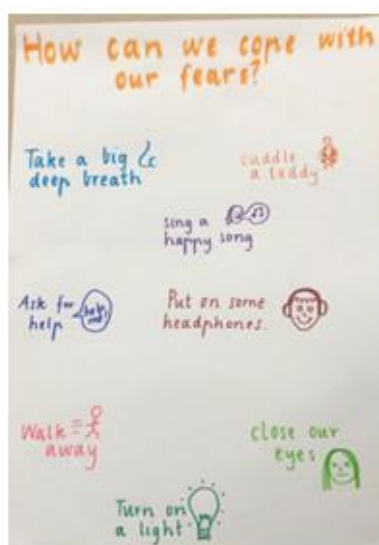 How can we cope with
our fears?
Take a big
deep breath
cuddle
a teddy
sing a
happy song
Ask for
help
Put on some
headphones.
Walk
away
close our
eyes
Turn on
a light